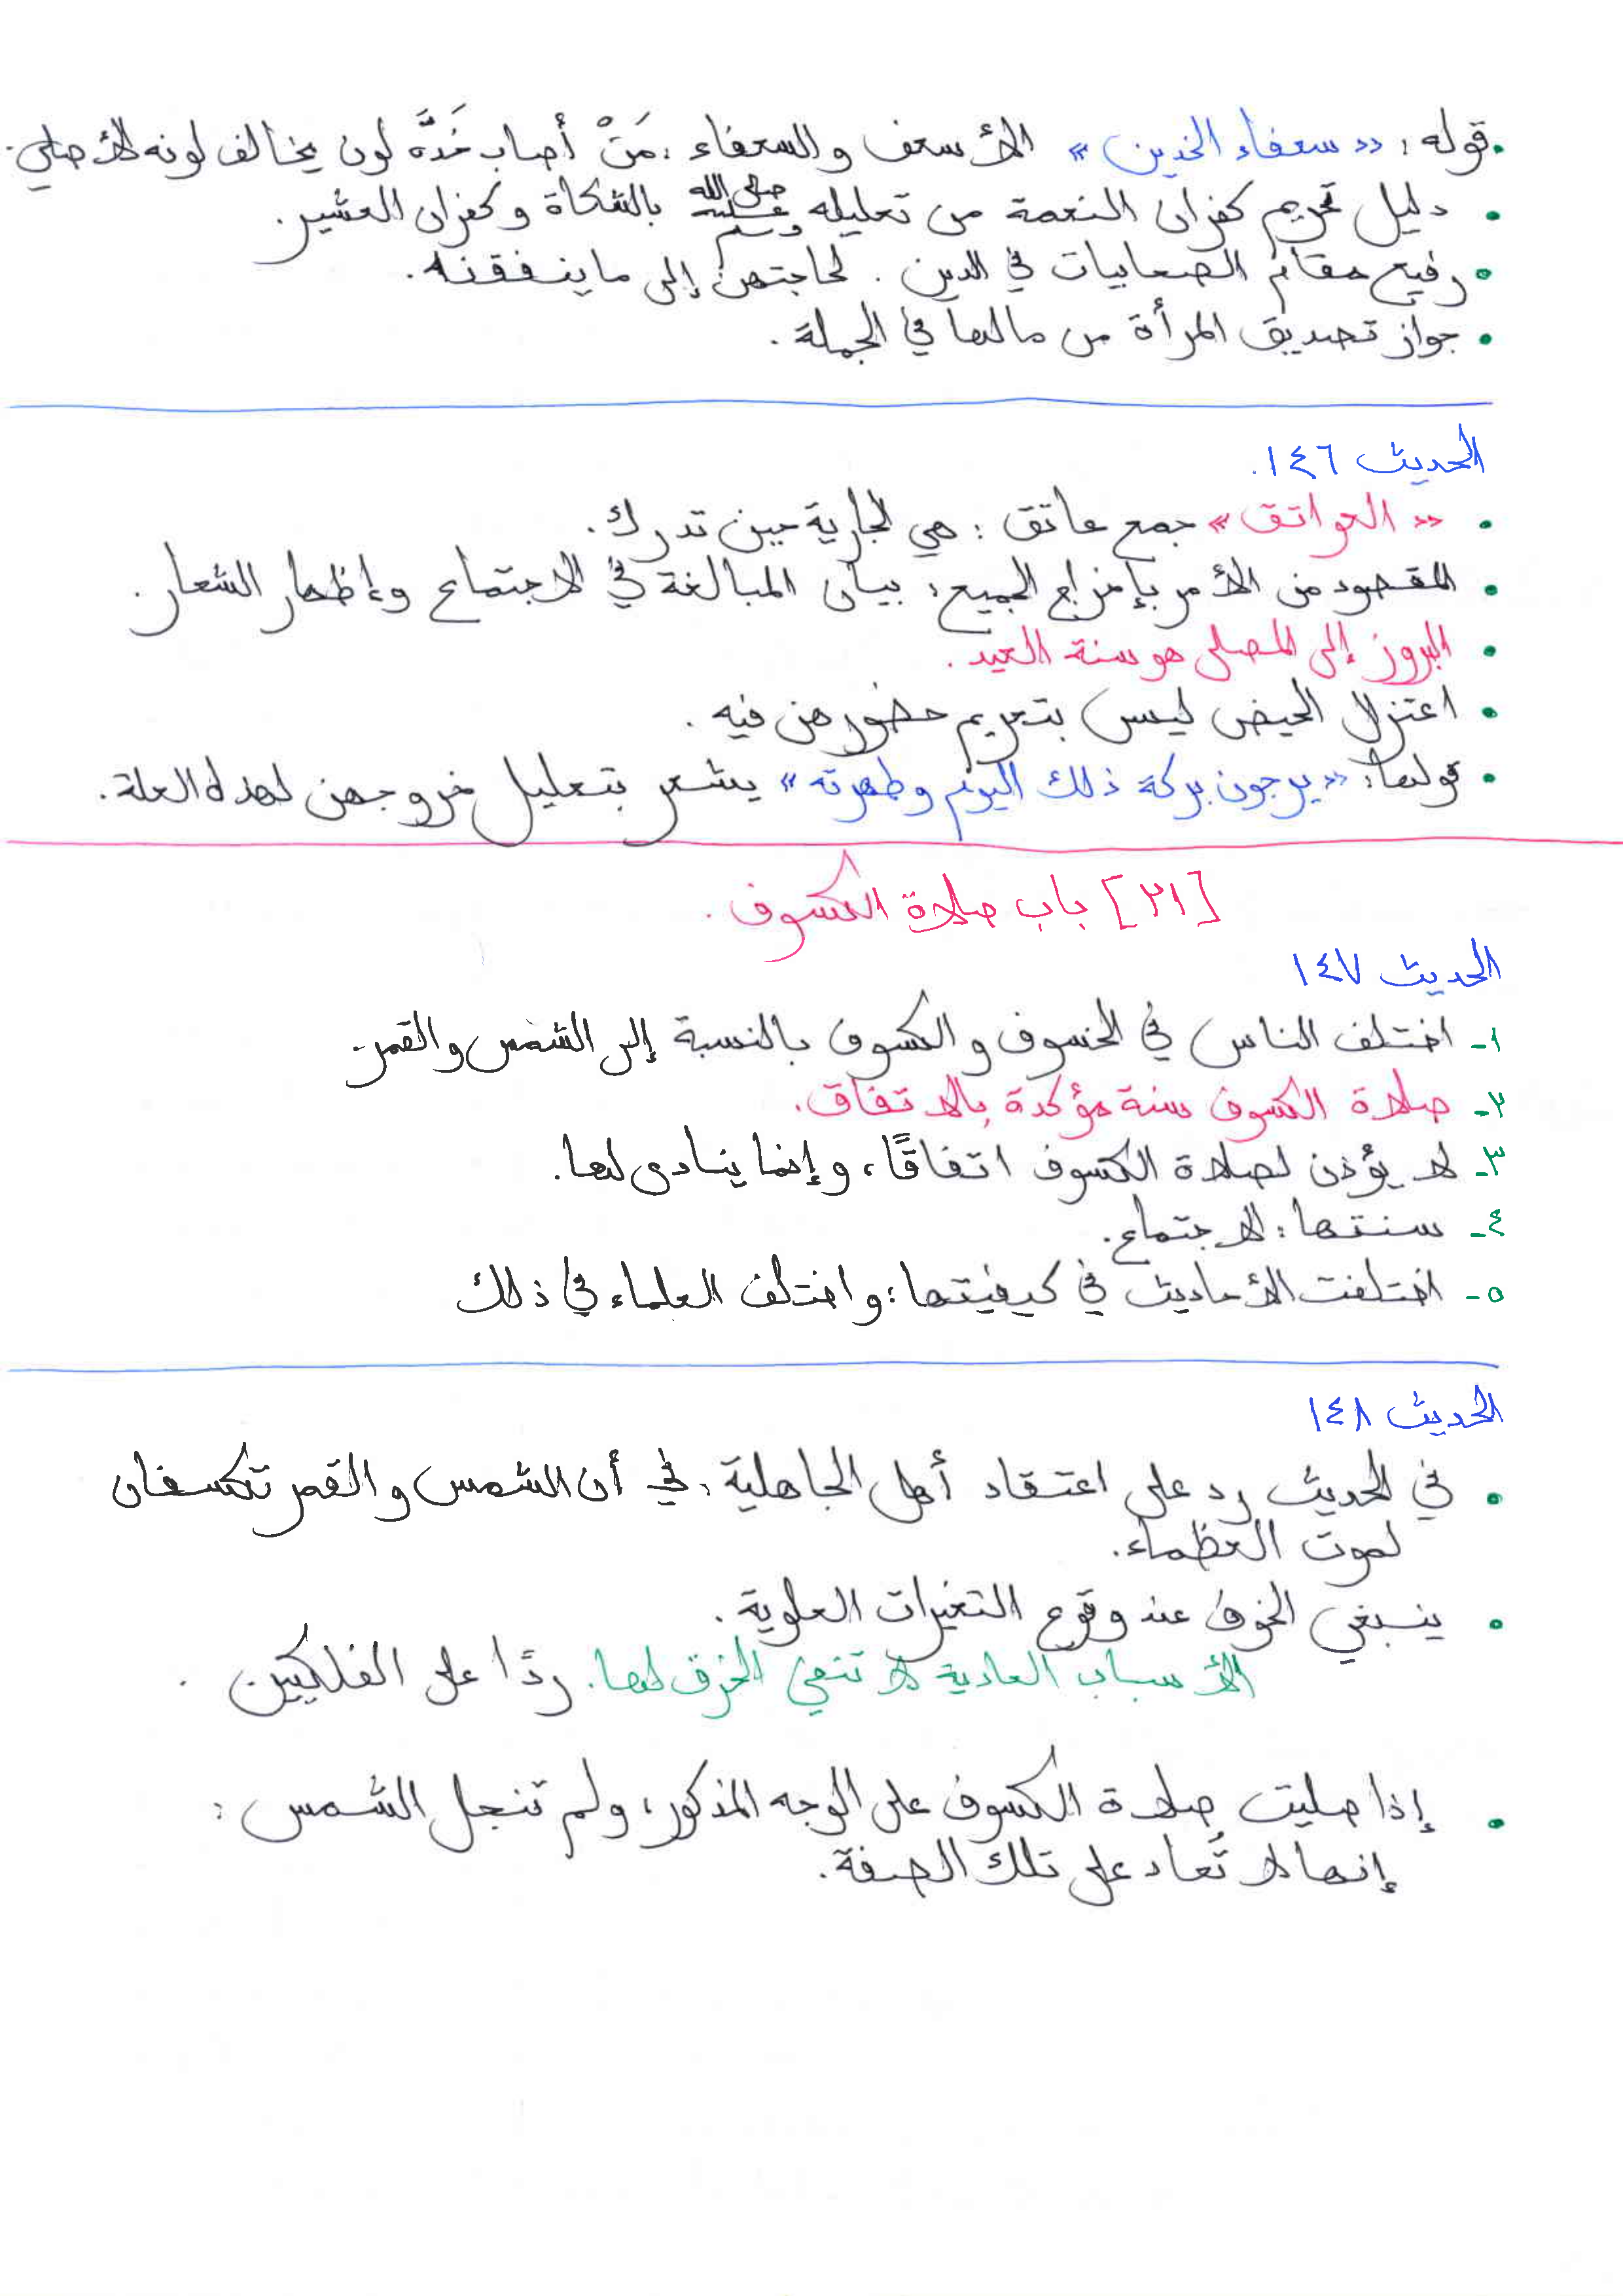 • قوله: «سعفاء الخدين» الأسعف والسعفاء: مَنْ أصاب خَدَّه لون يخالف لونه الأصلي.
• دليل تحريم كفران النعمة من تعليله صلى الله عليه وسلم بالشكاة وكفران العشير.
• رفيع مقام الصحابيات في الدين. لحاجتهن إلى ما ينفقنه.
• جواز تصديق المرأة من مالها في الجملة.
الحديث ١٤٦.
• «العواتق» جمع عاتق: هي الجارية حين تدرك.
• المقصود من الأمر بإخراج الجميع: بيان المبالغة في الاجتماع وإظهار الشعار.
• البروز إلى المصلى هو سنة العيد.
• اعتزال الحيض ليس بتحريم حضورهن فيه.
• قولها: «يرجون بركة ذلك اليوم وطهرته» يشعر بتعليل خروجهن لهذه العلة.
[٢١] باب صلاة الكسوف.
الحديث ١٤٧
١- اختلف الناس في الخسوف والكسوف بالنسبة إلى الشمس والقمر.
٢- صلاة الكسوف سنة مؤكدة بالاتفاق.
٣- لا يؤذن لصلاة الكسوف اتفاقًا، وإنما ينادى لها.
٤- سنتها: الاجتماع.
٥- اختلفت الأحاديث في كيفيتها؛ واختلف العلماء في ذلك
الحديث ١٤٨
• في الحديث رد على اعتقاد أهل الجاهلية، في أن الشمس والقمر تنكسفان
لموت العظماء.
• ينبغي الخوف عند وقوع التغيرات العلوية.
الأسباب العادية لا تنفي الخرق لها. ردًا على الفلكيين.
• إذا صليت صلاة الكسوف على الوجه المذكور، ولم تنجل الشمس:
إنها لا تُعاد على تلك الصفة.